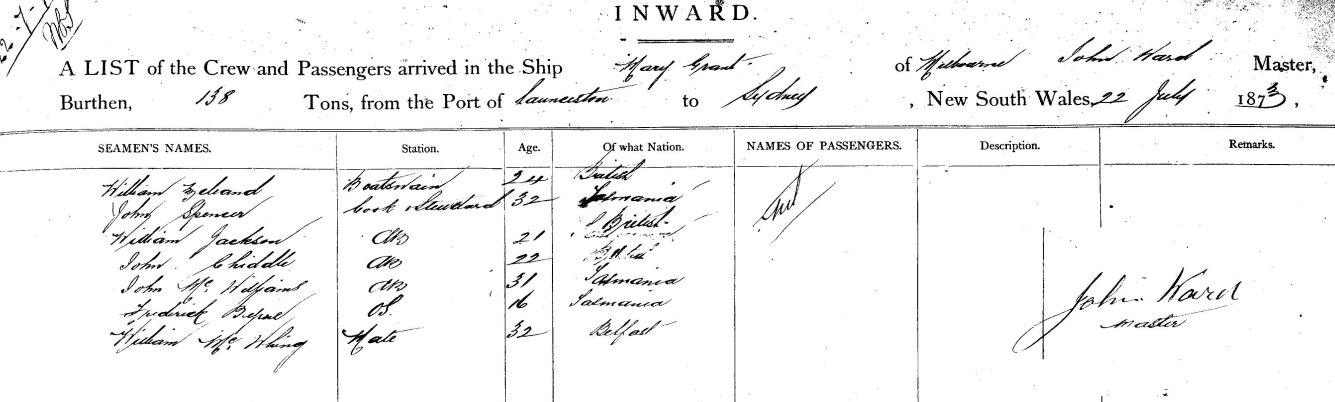 22-7-
INWARD.
A LIST of the Crew and Passengers arrived in the Ship Mary Grant of Melbourne John Ward Master,
Burthen, 138 Tons, from the Port of Launceston to Sydney, New South Wales, 22 July 1873,
SEAMEN'S NAMES. Station. Age. Of what Nation. NAMES OF PASSENGERS. Description. Remarks.
William Boatswain 24 British
John Spencer Cook & Steward 32 Tasmania
William Jackson AB 21 British
John Chiddle AB 22
John McWilliams AB 31 Tasmania
Frederick OS. 16 Tasmania
William Mc Mate 32 Belfast
John Ward
Master